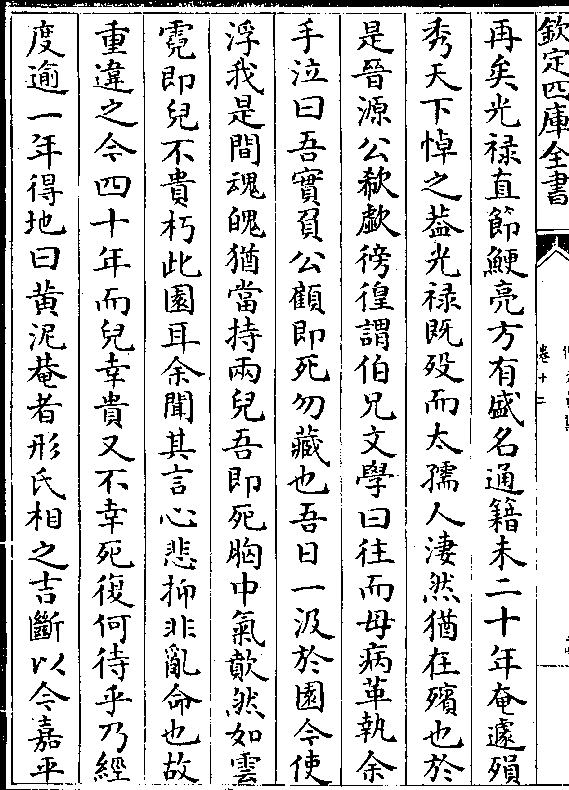 欽定四庫全書
卷十二
再矣光禄直節鯁亮方有盛名通籍未二十年奄遽殞
秀天下悼之葢光禄既殁而太孺人淒然猶在殯也於
是晉源公欷歔徬徨謂伯兄文學曰往而母病革執余
手泣曰吾實負公顧即死勿藏也吾日一汲於園今使
浮我是間魂魄猶當持兩兒吾即死胸中氣歕然如雲
霓即兒不貴朽此園耳余聞其言心悲抑非亂命也故
重違之今四十年而兒幸貴又不幸死復何待乎乃經
度逾一年得地曰黄泥菴者形氏相之吉斷以今嘉平